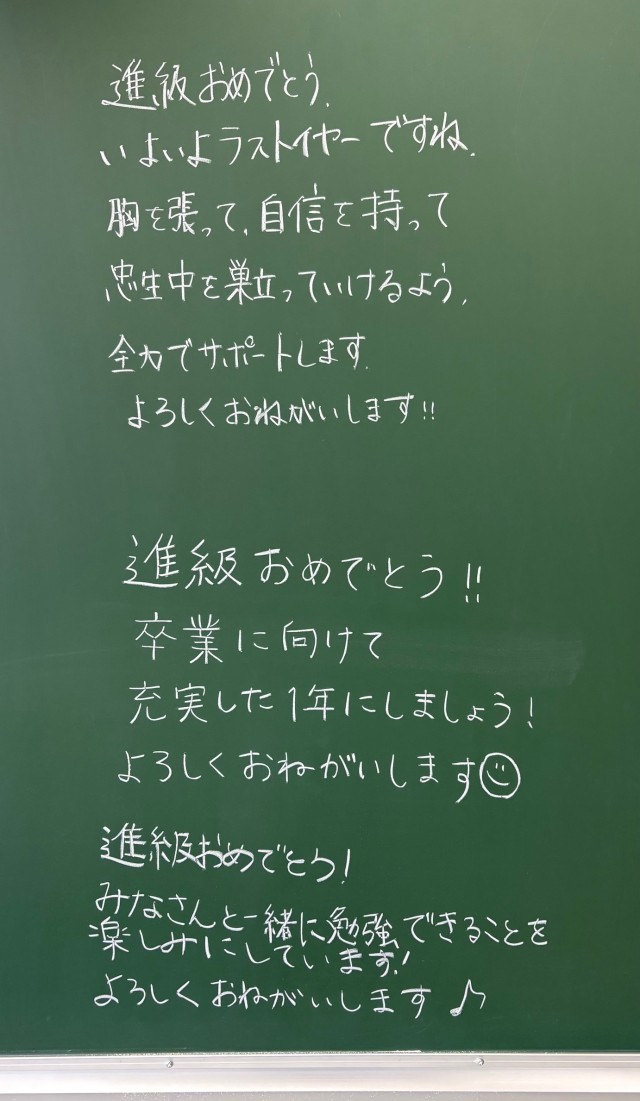 進級おめでとう.
いよいよラストイヤーですね.
胸を張って,自信を持って
忠生中を巣立っていけるよう,
全力でサポートします.
よろしくおねがいします!!
進級おめでとう!!
卒業に向けて
充実した1年にしましょう!
よろしくおねがいします☺
進級おめでとう!
みなさんと一緒に勉強できることを
楽しみにしています!
よろしくおねがいします♪